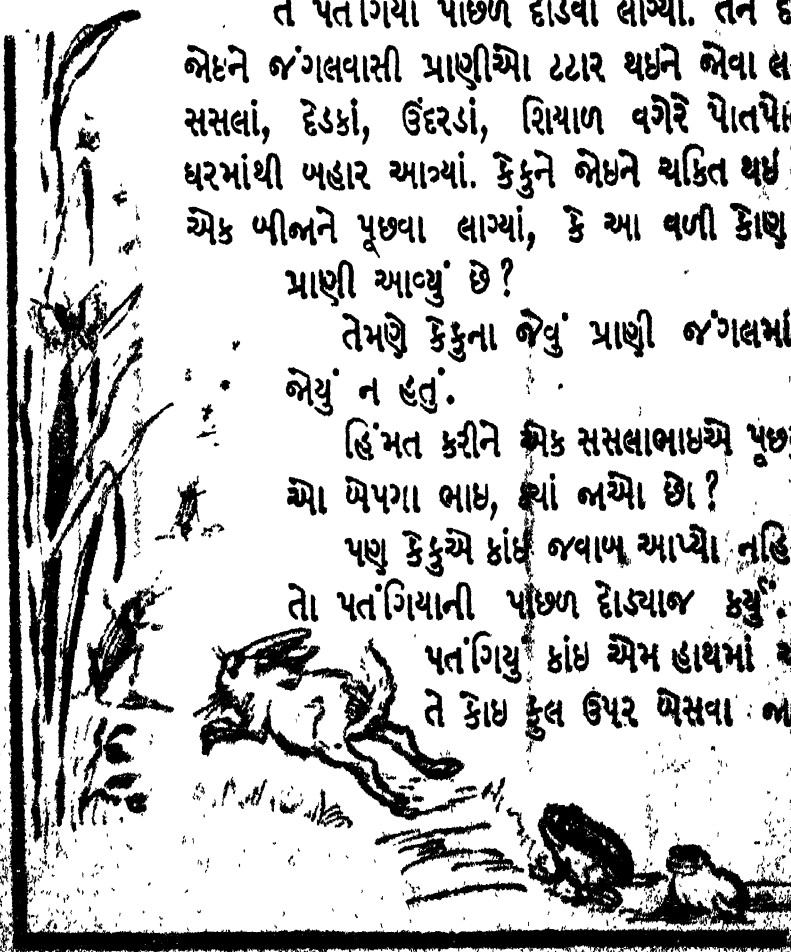 તે પતંગિયા પાછળ દોડવા લાગ્યો. તેને
જોઇને જંગલવાસી પ્રાણીઓ ટટાર થઇને જોવા
સસલાં, દેડકાં, ઉંદરડાં, શિયાળ વગેરે પોતપો
ઘરમાંથી બહાર આવ્યાં. કેકુને જોઇને ચકિત થઈ
એક બીજાને પૂછવા લાગ્યાં, કે આ વળી કોણ
પ્રાણી આવ્યું છે?
તેમણે કેકુના જેવું પ્રાણી જંગલમાં
જોયું ન હતું.
હિંમત કરીને એક સસલાભાઇએ પૂછ
ઓ બેપગા ભાઇ, ક્યાં જાઓ છો?
પણ કેકુએ કાંઈ જવાબ આપ્યો નહિ
તો પતંગિયાની પાછળ દોડ્યાજ કર્યું.
પતંગિયુ કાંઇ એમ હાથમાં
તે કોઇ ફુલ ઉપર બેસવા જા